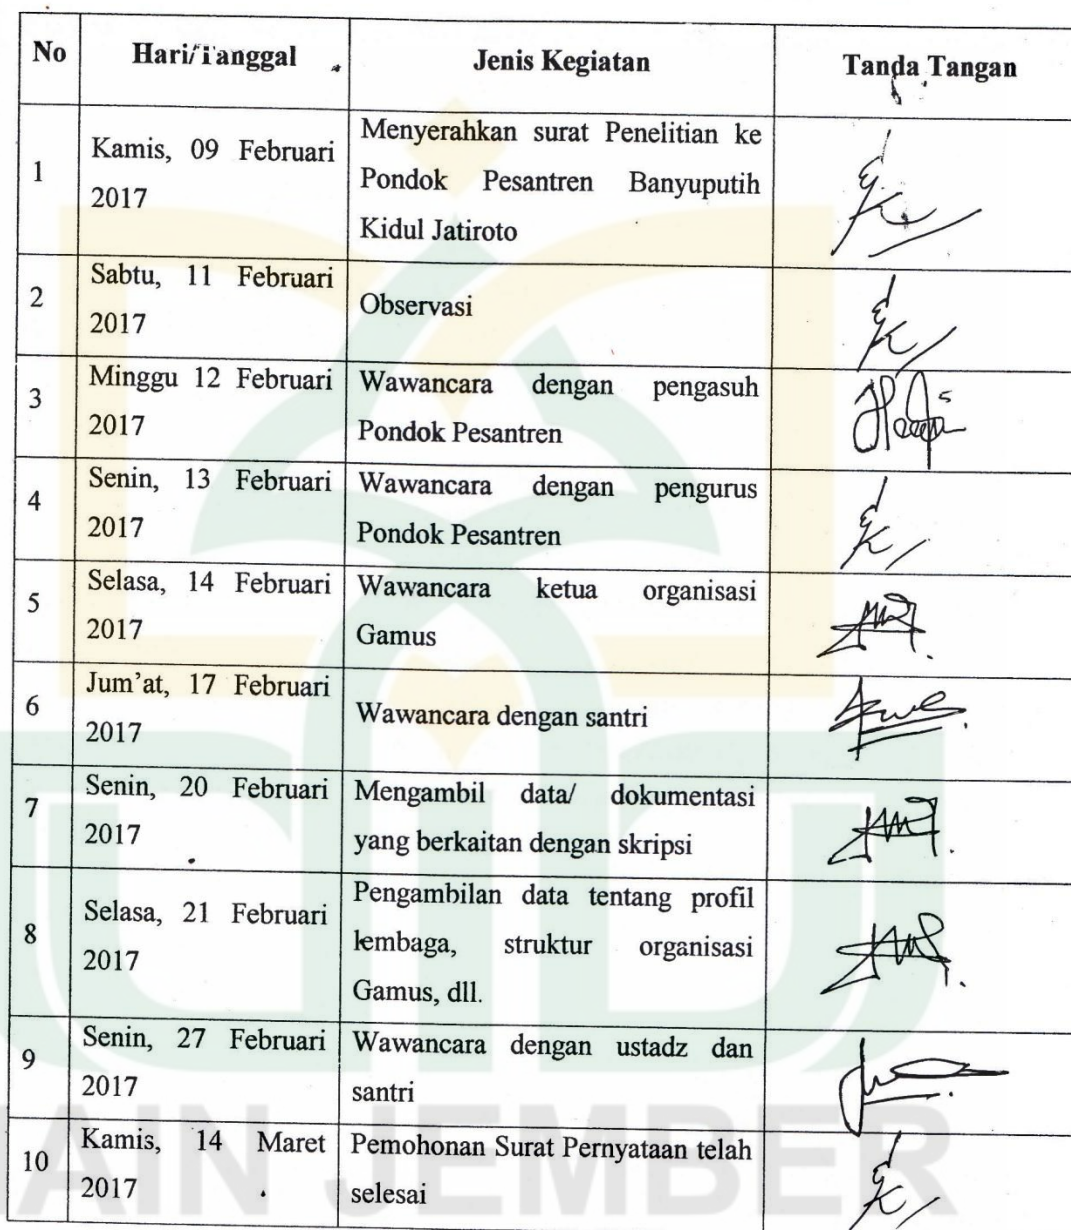 No Hari/Tanggal Jenis Kegiatan Tanda Tangan
1 Kamis, 09 Februari 2017 Menyerahkan surat Penelitian ke
Pondok Pesantren Banyuputih
Kidul Jatiroto
2 Sabtu, 11 Februari 2017 Observasi
3 Minggu 12 Februari 2017 Wawancara dengan pengasuh
Pondok Pesantren
4 Senin, 13 Februari 2017 Wawancara dengan pengurus
Pondok Pesantren
5 Selasa, 14 Februari 2017 Wawancara ketua organisasi
Gamus
6 Jum'at, 17 Februari 2017 Wawancara dengan santri
7 Senin, 20 Februari 2017 Mengambil data/ dokumentasi
yang berkaitan dengan skripsi
8 Selasa, 21 Februari 2017 Pengambilan data tentang profil
lembaga, struktur organisasi
Gamus, dll.
9 Senin, 27 Februari 2017 Wawancara dengan ustadz dan
santri
10 Kamis, 14 Maret 2017 Pemohonan Surat Pernyataan telah
selesai
AIN JEMBER